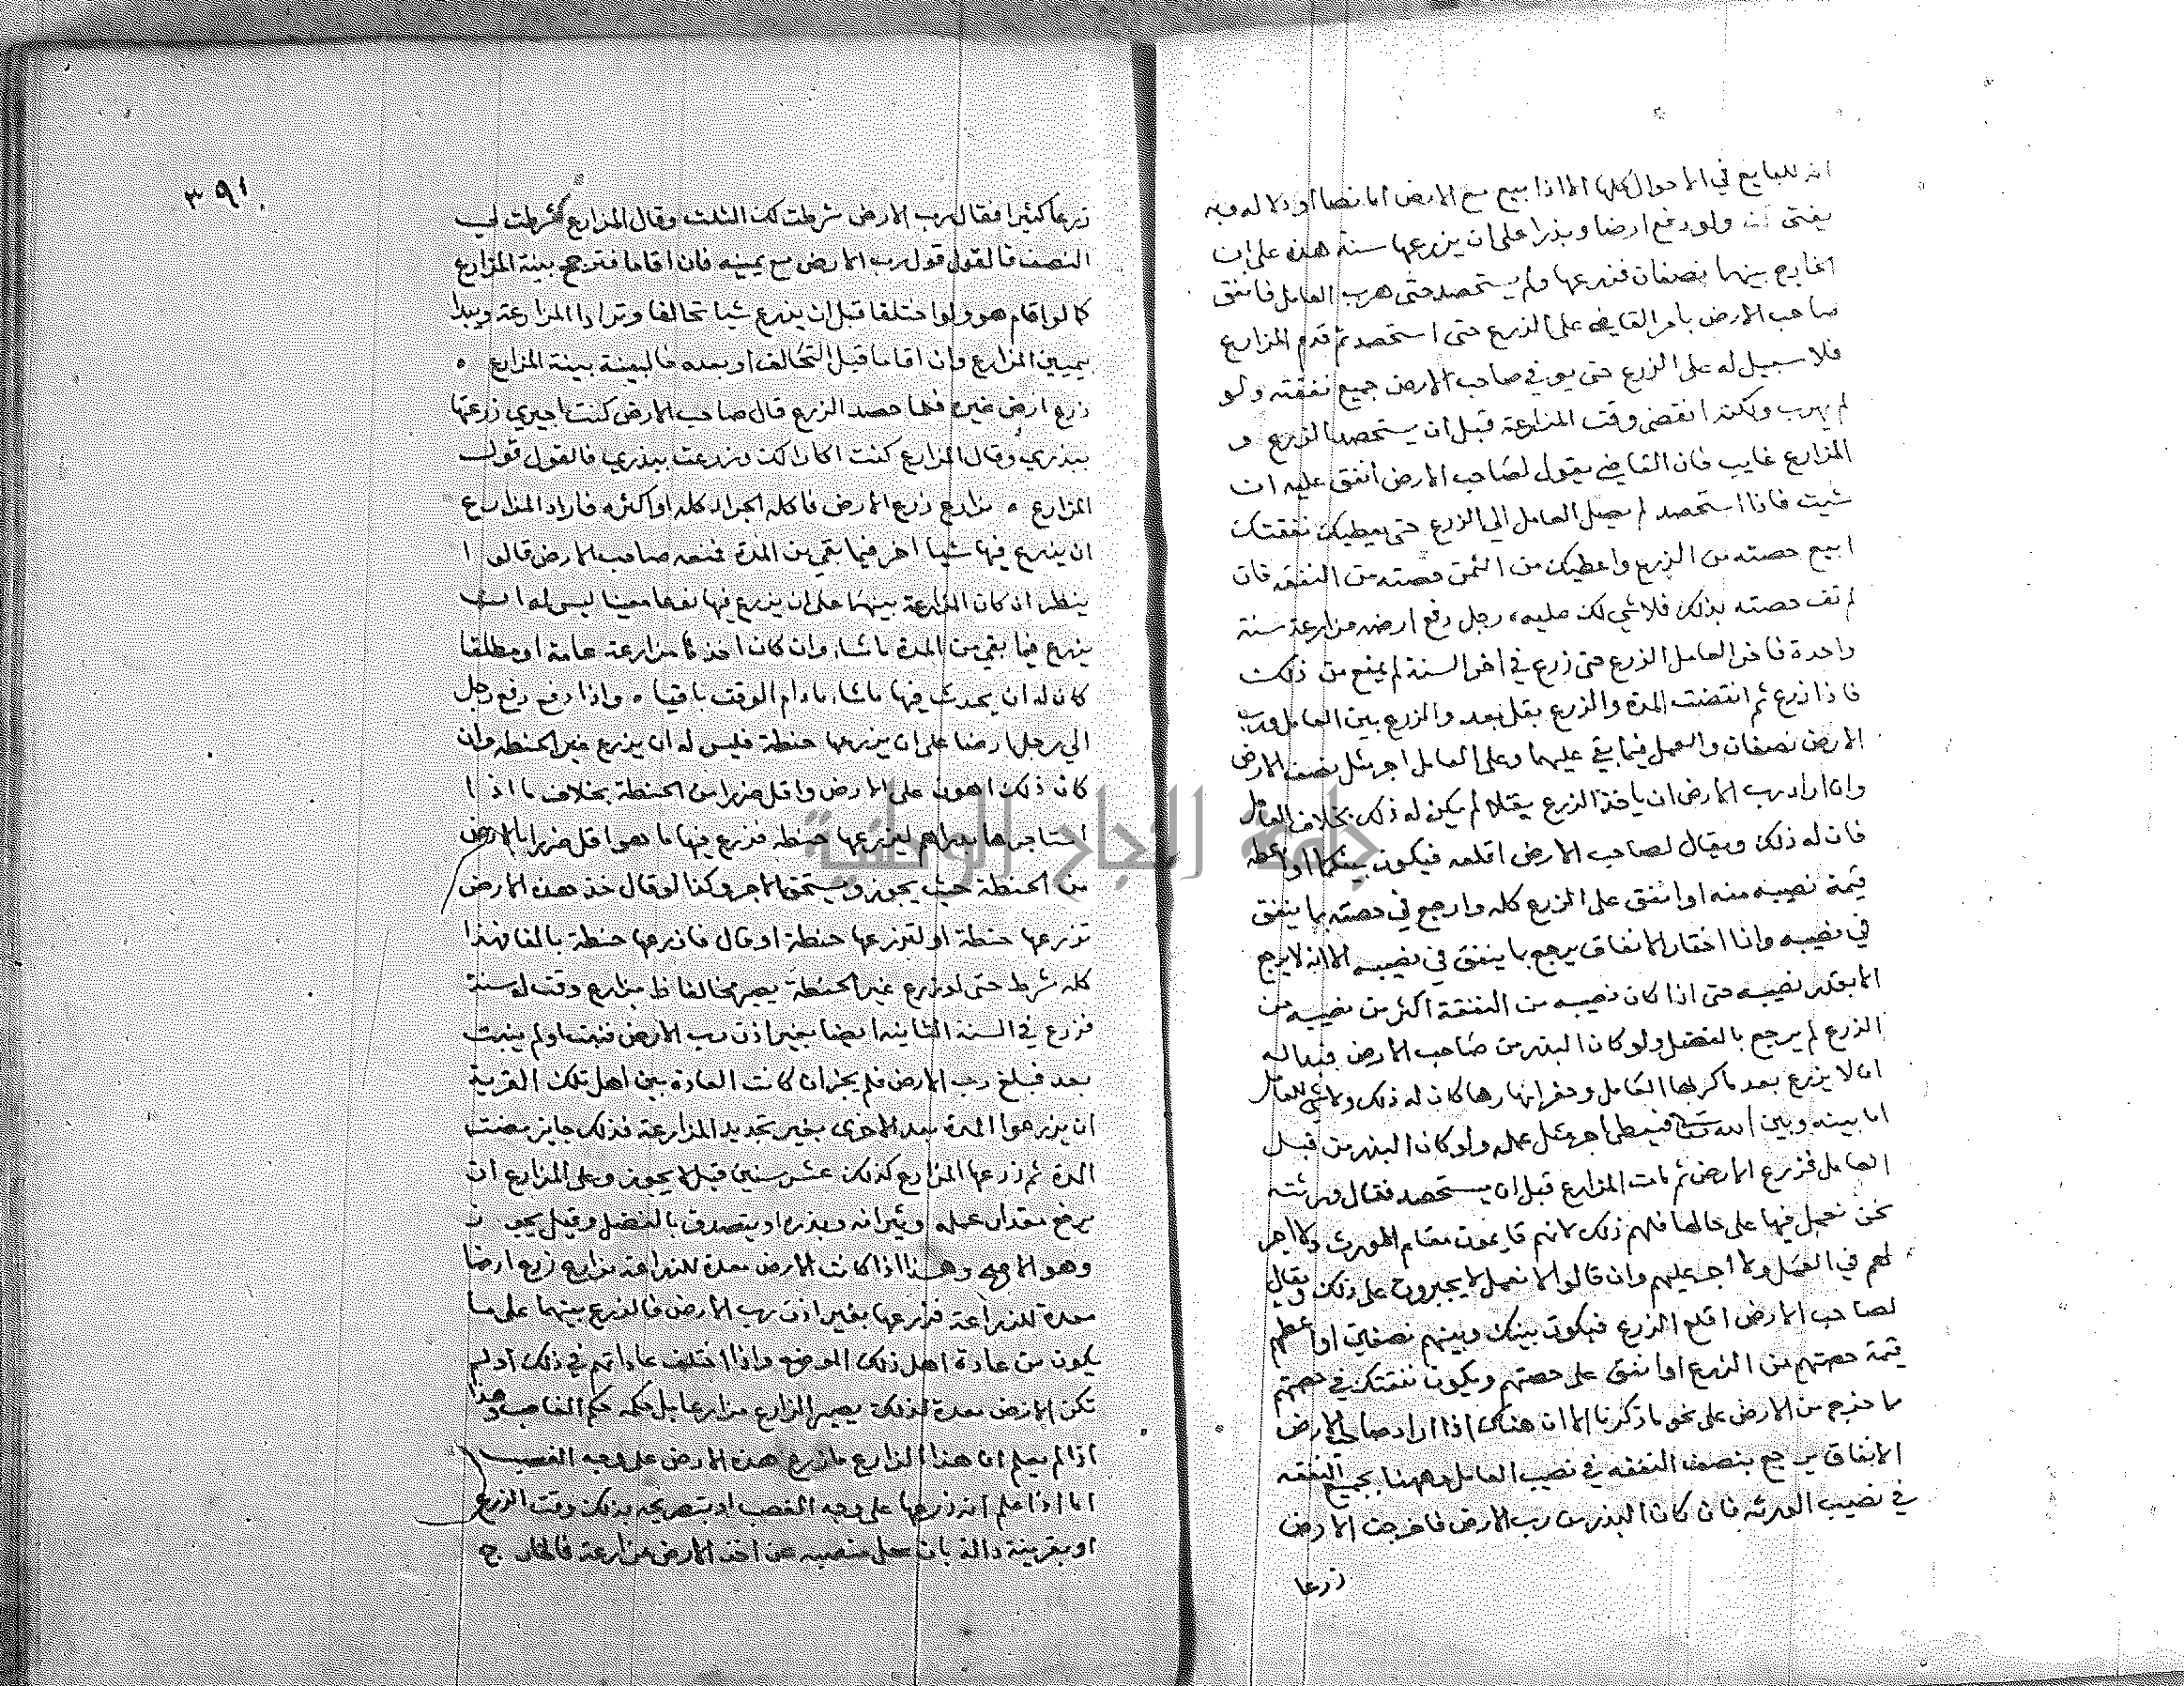 انه للبايع في الاحوال كلها الا اذا بيع مع الارض اما نصا او دلالة وبه
يفتى ولو دفع ارضا وبذرا على ان يزرعها سنة هذه على ان
الخارج بينهما نصفان فزرعها ولم يستحصد حتى هرب العامل فانفق
صاحب الارض بامر القاضي على الزرع حتى استحصد ثم قدم المزارع
فلا سبيل له على الزرع حتى يوفي صاحب الارض جميع نفقته ولو
لم يهرب ولكنه انقضى وقت المزارعة قبل ان يستحصد الزرع و
المزارع غايب فان القاضي يقول لصاحب الارض انفق عليه ان
شيت فاذا استحصد لم يصل العامل الى الزرع حتى يعطيك نفقتك
ابيع حصته من الزرع واعطيك من الثمن حصته من النفقه فان
لم تف حصته بذلك فلا شي لك عليه، رجل دفع ارضه مزارعة سنة
واحدة فاخر العامل الزرع حتى زرع في اخر السنة لم يمنع من ذلك
فاذا زرع ثم انقضت المدة والزرع بقل بعد والزرع بين العامل ورب
الارض نصفان والعمل فيما بقي عليهما وعلى العامل اجر مثل نصف الارض
وان اراد رب الارض ان ياخذ الزرع بقلا لم يكن له ذلك بخلاف العامل
فان له ذلك ويقال لصاحب الارض اقلعه فيكون بينكما او اعطه
قيمة نصيبه منه او انفق على الزرع كله وارجع في حصته بما ينفق
في نصيبه واذا اختار الانفاق يرجع بما ينفق في نصيبه الا انه لا يرجع
الا بقدر نصيبه حتى اذا كان نصيبه من النفقة اكثر من نصيبه من
الزرع لم يرجع بالفضل ولو كان البذر من صاحب الارض فبدا له
ان لا يزرع بعد ما كربها العامل وحفر انهارها كان له ذلك ولا شي للعامل
اما بينه وبين الله تعالى فيعطى اجر مثل عمله ولو كان البذر من قبل
العامل فزرع الارض ثم مات المزارع قبل ان يستحصد فقال ورثته
نحن نعمل فيها على حالها فلهم ذلك لانهم قايمون مقام المورث ولا اجر
لهم في العمل ولا اجر عليهم وان قالوا لا نعمل لا يجبرون على ذلك ويقال
لصاحب الارض اقلع الزرع فيكون بينك وبينهم نصفين او اعطهم
قيمة حصتهم من الزرع او انفق على حصتهم ويكون نفقتك في حصتهم
ما خرج من الارض على نحو ما ذكرنا الا ان هناك اذا اراد صاحب الارض
الانفاق يرجع بنصف النفقه في نصيب العامل وههنا بجميع النفقه
في نصيب الورثه فان كان البذر من رب الارض فاخرجت الارض
زرعا
٣٩١
زرعا كثيرا فقال رب الارض شرطت لك الثلث وقال المزارع شرطت لي
النصف فالقول قول رب الارض مع يمينه فان اقاما فترجح بينة المزارع
كما لو اقام هو ولو اختلفا قبل ان يزرع شيا تحالفا وترادا المزارعة ويبدا
بيمين المزارع وان اقاما قبل التحالف او بعده فالبينة بينة المزارع ه
زرع ارض غيره فلما حصد الزرع قال صاحب الارض كنت اجيري زرعتها
ببذري وقال المزارع كنت اكارا لك وزرعت ببذري فالقول قول
المزارع ه مزارع زرع الارض فاكله الجراد كله او اكثره فاراد المزارع
ان يزرع فيها شيا اخر فيما بقي من المدة فمنعه صاحب الارض قالوا
ينظر ان كان المزارعة بينهما على ان يزرع فيها نوعا معينا ليس له ان
يزرع فيما بقي من المدة ما شاء وان كان اخذها مزارعة عامة او مطلقا
كان له ان يحدث فيها ما شاء مادام الوقت باقيا ه واذا دفع دفع رجل
الى رجل ارضا على ان يزرعها حنطة فليس له ان يزرع غير الحنطه وان
كان ذلك اهون على الارض واقل ضررا من الحنطة بخلاف ما اذا
استاجرها بدراهم ليزرعها حنطه فزرع فيها ما هو اقل ضررا بالارض
من الحنطة حيث يجوز ويستحق الاجر وكذا لو قال خذ هذه الارض
تزرعها حنطة او لتزرعها حنطة او قال فازرعها حنطة بالفا فهذا
كله شرط حتى لو زرع غير الحنطة يصير مخالفا ه مزارع وقت له سنة
فزرع في السنة الثانيه ايضا بغير اذن رب الارض فنبت او لم ينبت
بعد فبلغ رب الارض فلم يجز ان كانت العادة بين اهل تلك القرية
ان يزرعوا المرة بعد الاخرى بغير تجديد المزارعة فذلك جايز مضت
المدة ثم زرعها المزارع كذلك عشر سنين قيل لا يجوز وعلى المزارع ان
يرفع مقدار عمله وثيرانه وبذره او يتصدق بالفضل وقيل يجوز
وهو الاصح وهذا اذا كانت الارض معدة للزراعة مزارع زرع ارضا
معدة للزراعة فزرعها بغير اذن رب الارض فالزرع بينهما على ما
يكون من عادة اهل ذلك الموضع واذا اختلف عاداتهم في ذلك او لم
تكن الارض معدة لذلك يصير المزارع مزارعا بل حكمه حكم الغاصب وهذا
اذا لم يعلم ان هذا المزارع ما زرع هذه الارض على وجه الغصب
اما اذا علم انه زرعها على وجه الغصب او بتصريحه بذلك وقت الزرع
او بقرينة دالة بان مثل منصبه عن اخذ الارض مزارعة فالخارج
جامعة النجاح الوطنية